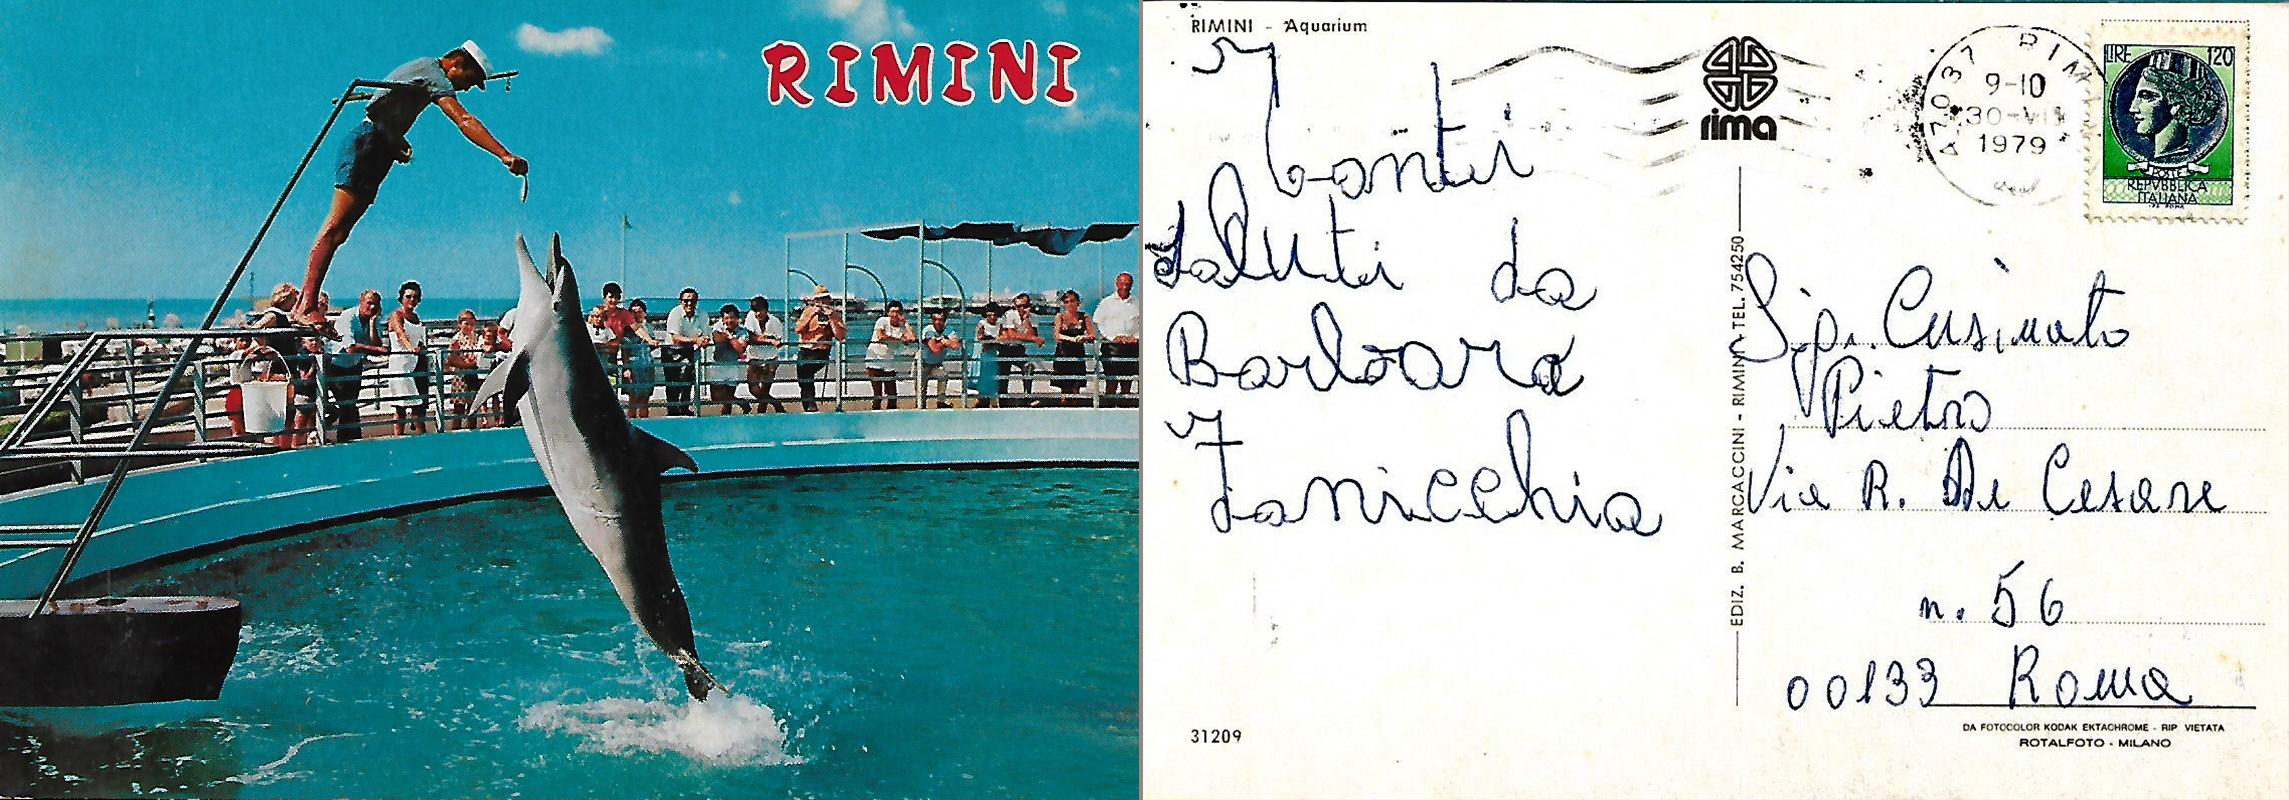 RIMINI
RIMINI - Aquarium
rima
47037 RIMI
9-10
30-VII
1979
LIRE 120
POSTE
REPVBBLICA
ITALIANA
Tanti
saluti da
Barbara
Zanicchia
EDIZ. B. MARCACCINI - RIMINI - TEL. 754250
Sig. Cusimato
Pietro
Via R. De Cesare
n. 56
00133 Roma
31209
DA FOTOCOLOR KODAK EKTACHROME - RIP. VIETATA
ROTALFOTO - MILANO